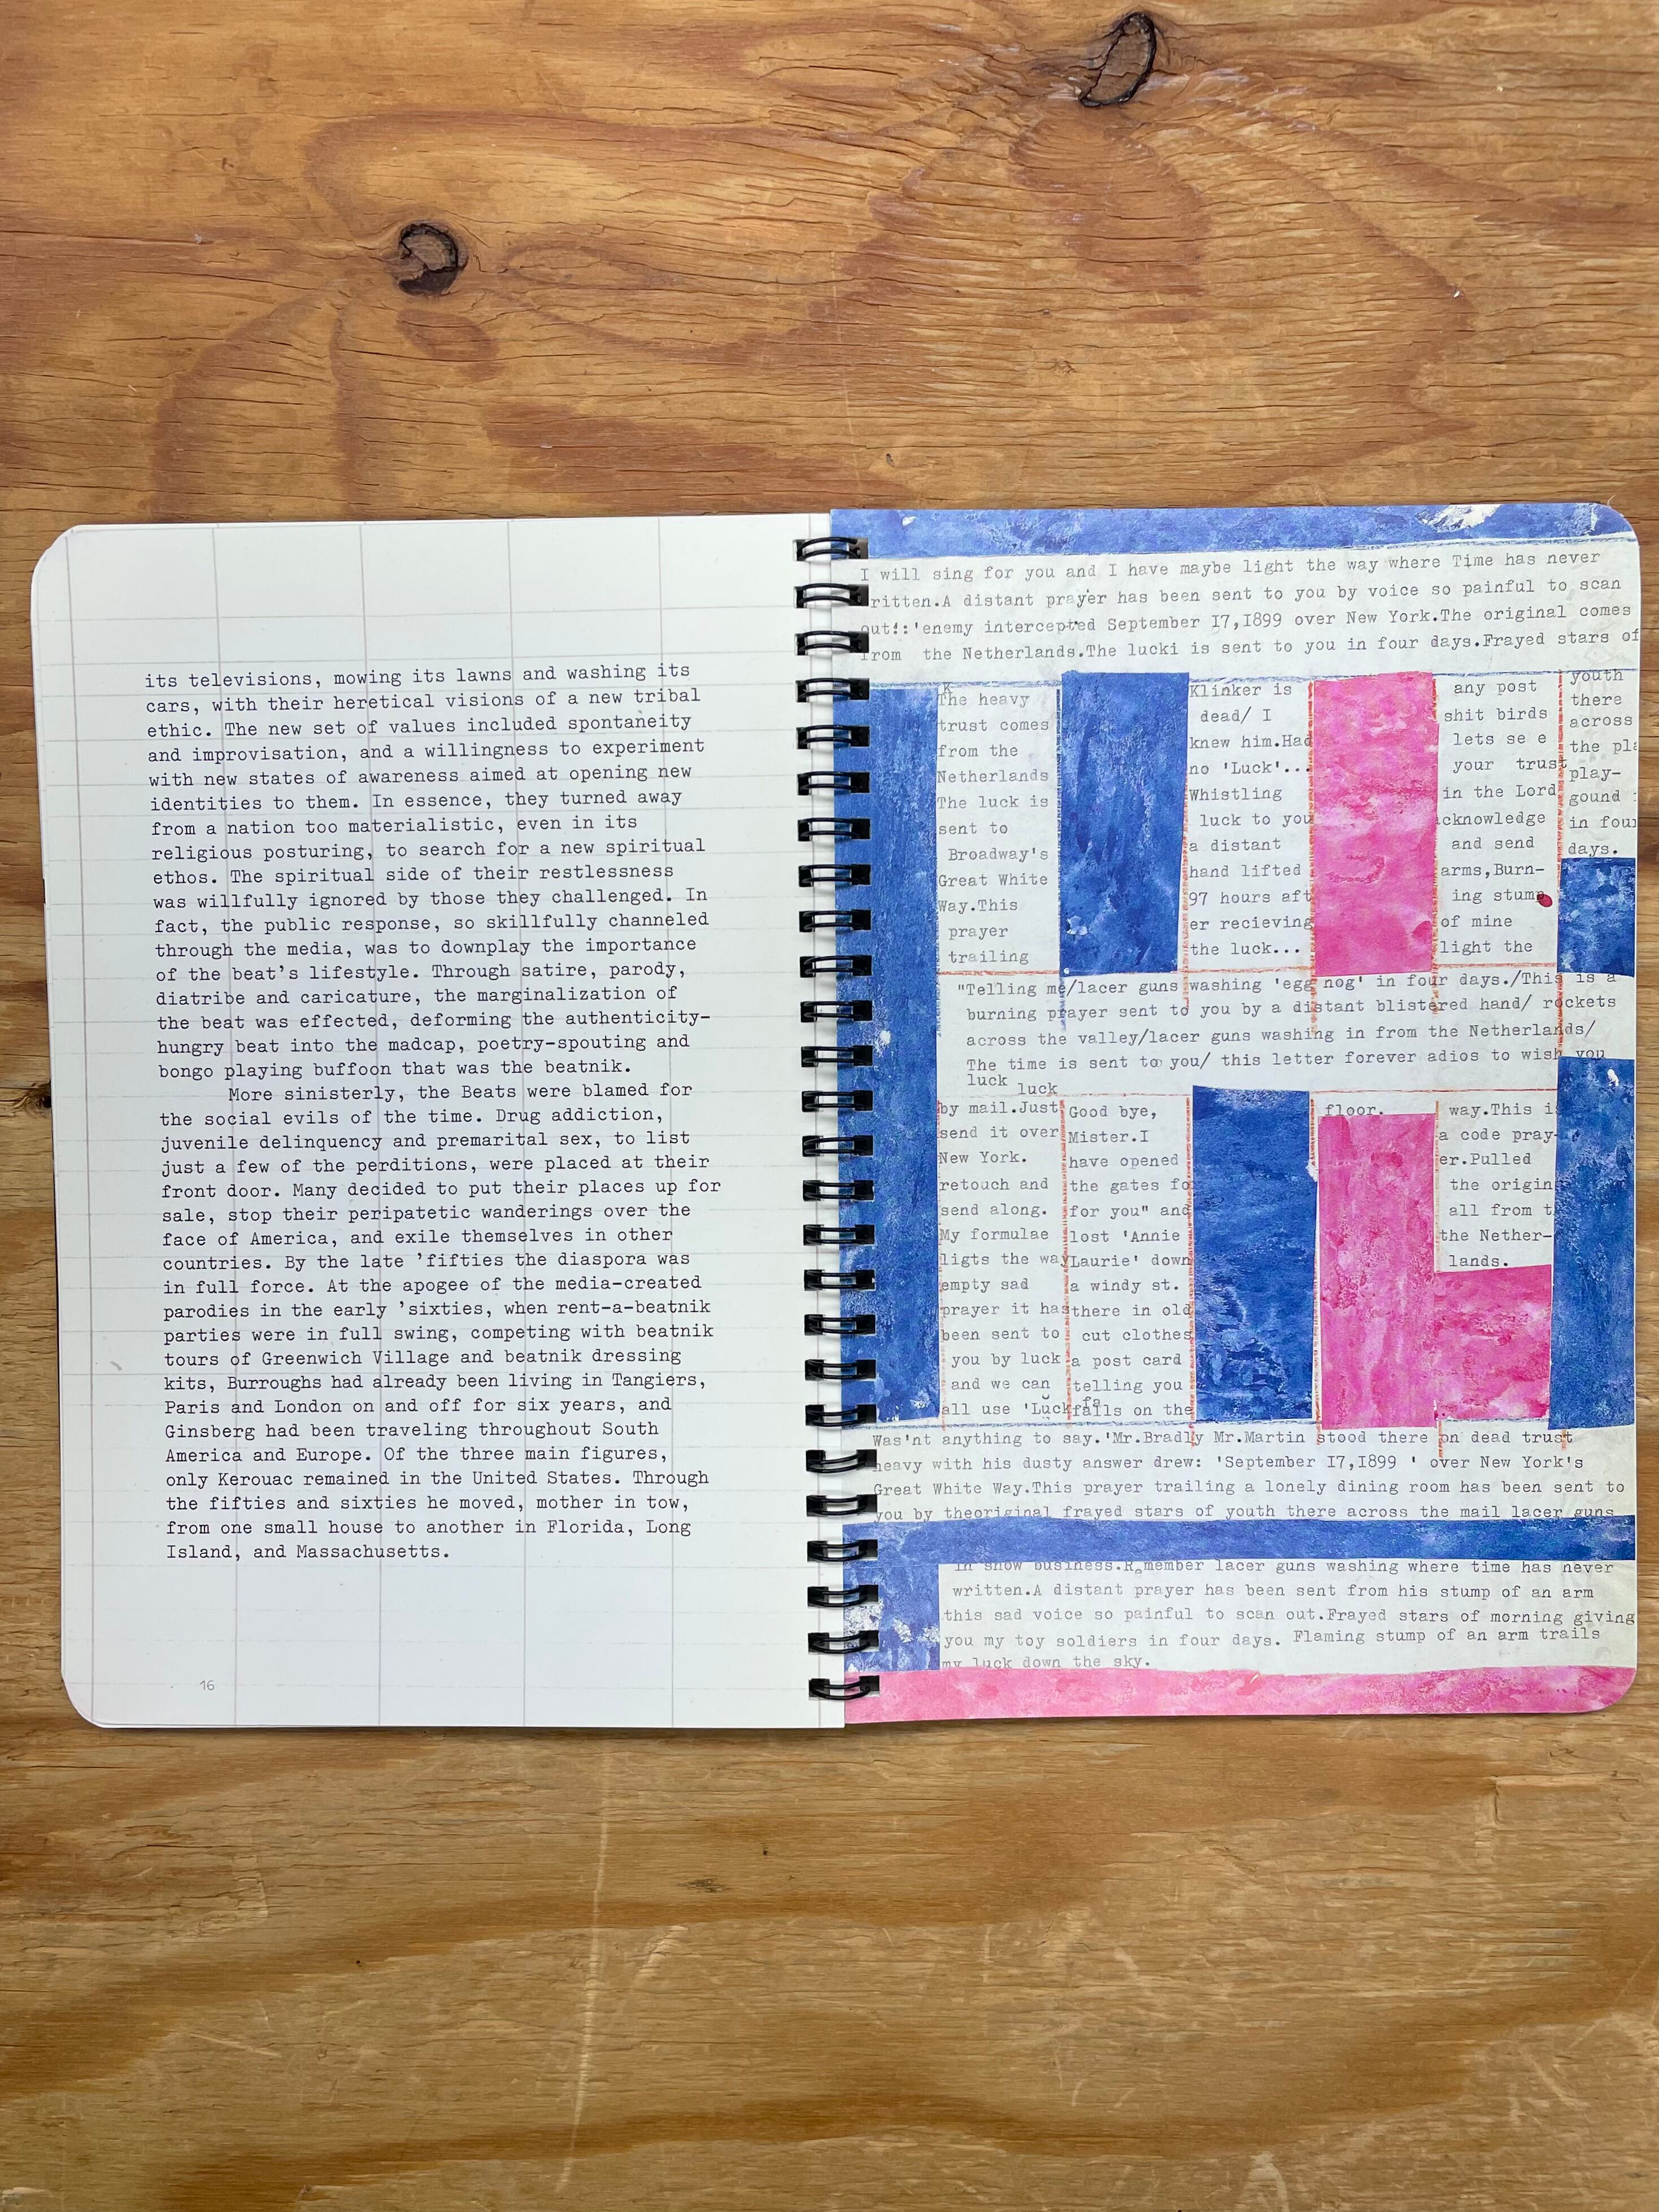 its televisions, mowing its lawns and washing its
cars, with their heretical visions of a new tribal
ethic. The new set of values included spontaneity
and improvisation, and a willingness to experiment
with new states of awareness aimed at opening new
identities to them. In essence, they turned away
from a nation too materialistic, even in its
religious posturing, to search for a new spiritual
ethos. The spiritual side of their restlessness
was willfully ignored by those they challenged. In
fact, the public response, so skillfully channeled
through the media, was to downplay the importance
of the beat's lifestyle. Through satire, parody,
diatribe and caricature, the marginalization of
the beat was effected, deforming the authenticity-
hungry beat into the madcap, poetry-spouting and
bongo playing buffoon that was the beatnik.
More sinisterly, the Beats were blamed for
the social evils of the time. Drug addiction,
juvenile delinquency and premarital sex, to list
just a few of the perditions, were placed at their
front door. Many decided to put their places up for
sale, stop their peripatetic wanderings over the
face of America, and exile themselves in other
countries. By the late 'fifties the diaspora was
in full force. At the apogee of the media-created
parodies in the early 'sixties, when rent-a-beatnik
parties were in full swing, competing with beatnik
tours of Greenwich Village and beatnik dressing
kits, Burroughs had already been living in Tangiers,
Paris and London on and off for six years, and
Ginsberg had been traveling throughout South
America and Europe. Of the three main figures,
only Kerouac remained in the United States. Through
the fifties and sixties he moved, mother in tow,
from one small house to another in Florida, Long
Island, and Massachusetts.
16
I will sing for you and I have maybe light the way where Time has never
ritten.A distant prayer has been sent to you by voice so painful to scan
out!:'enemy intercepted September I7,I899 over New York.The original comes
from the Netherlands.The lucki is sent to you in four days.Frayed stars of
The heavy
trust comes
from the
Netherlands
The luck is
sent to
Broadway's
Great White
Way.This
prayer
trailing
Klinker is
dead/ I
knew him.Had
no 'Luck'...
Whistling
luck to you
a distant
hand lifted
97 hours aft
er recieving
the luck...
any post
shit birds
lets se e
your trust
in the Lord
cknowledge
and send
arms,Burn-
ing stump
of mine
light the
youth
there
across
the pla
play-
gound
in four
days.
"Telling me/lacer guns washing 'egg nog' in four days./This is a
burning prayer sent to you by a distant blistered hand/ rockets
across the valley/lacer guns washing in from the Netherlands/
The time is sent to you/ this letter forever adios to wish you
luck luck
by mail.Just
send it over
New York.
retouch and
send along.
My formulae
ligts the way
empty sad
prayer it has
been sent to
you by luck
and we can
all use 'Luck
Good bye,
Mister.I
have opened
the gates fo
for you" and
lost 'Annie
Laurie' down
a windy st.
there in old
cut clothes
a post card
telling you
falls on the
floor.
way.This i
a code pray-
er.Pulled
the origin
all from t
the Nether-
lands.
Was'nt anything to say.'Mr.Bradly Mr.Martin stood there on dead trust
heavy with his dusty answer drew: 'September I7,I899 ' over New York's
Great White Way.This prayer trailing a lonely dining room has been sent to
you by theoriginal frayed stars of youth there across the mail lacer guns
in show business.Remember lacer guns washing where time has never
written.A distant prayer has been sent from his stump of an arm
this sad voice so painful to scan out.Frayed stars of morning giving
you my toy soldiers in four days. Flaming stump of an arm trails
my luck down the sky.